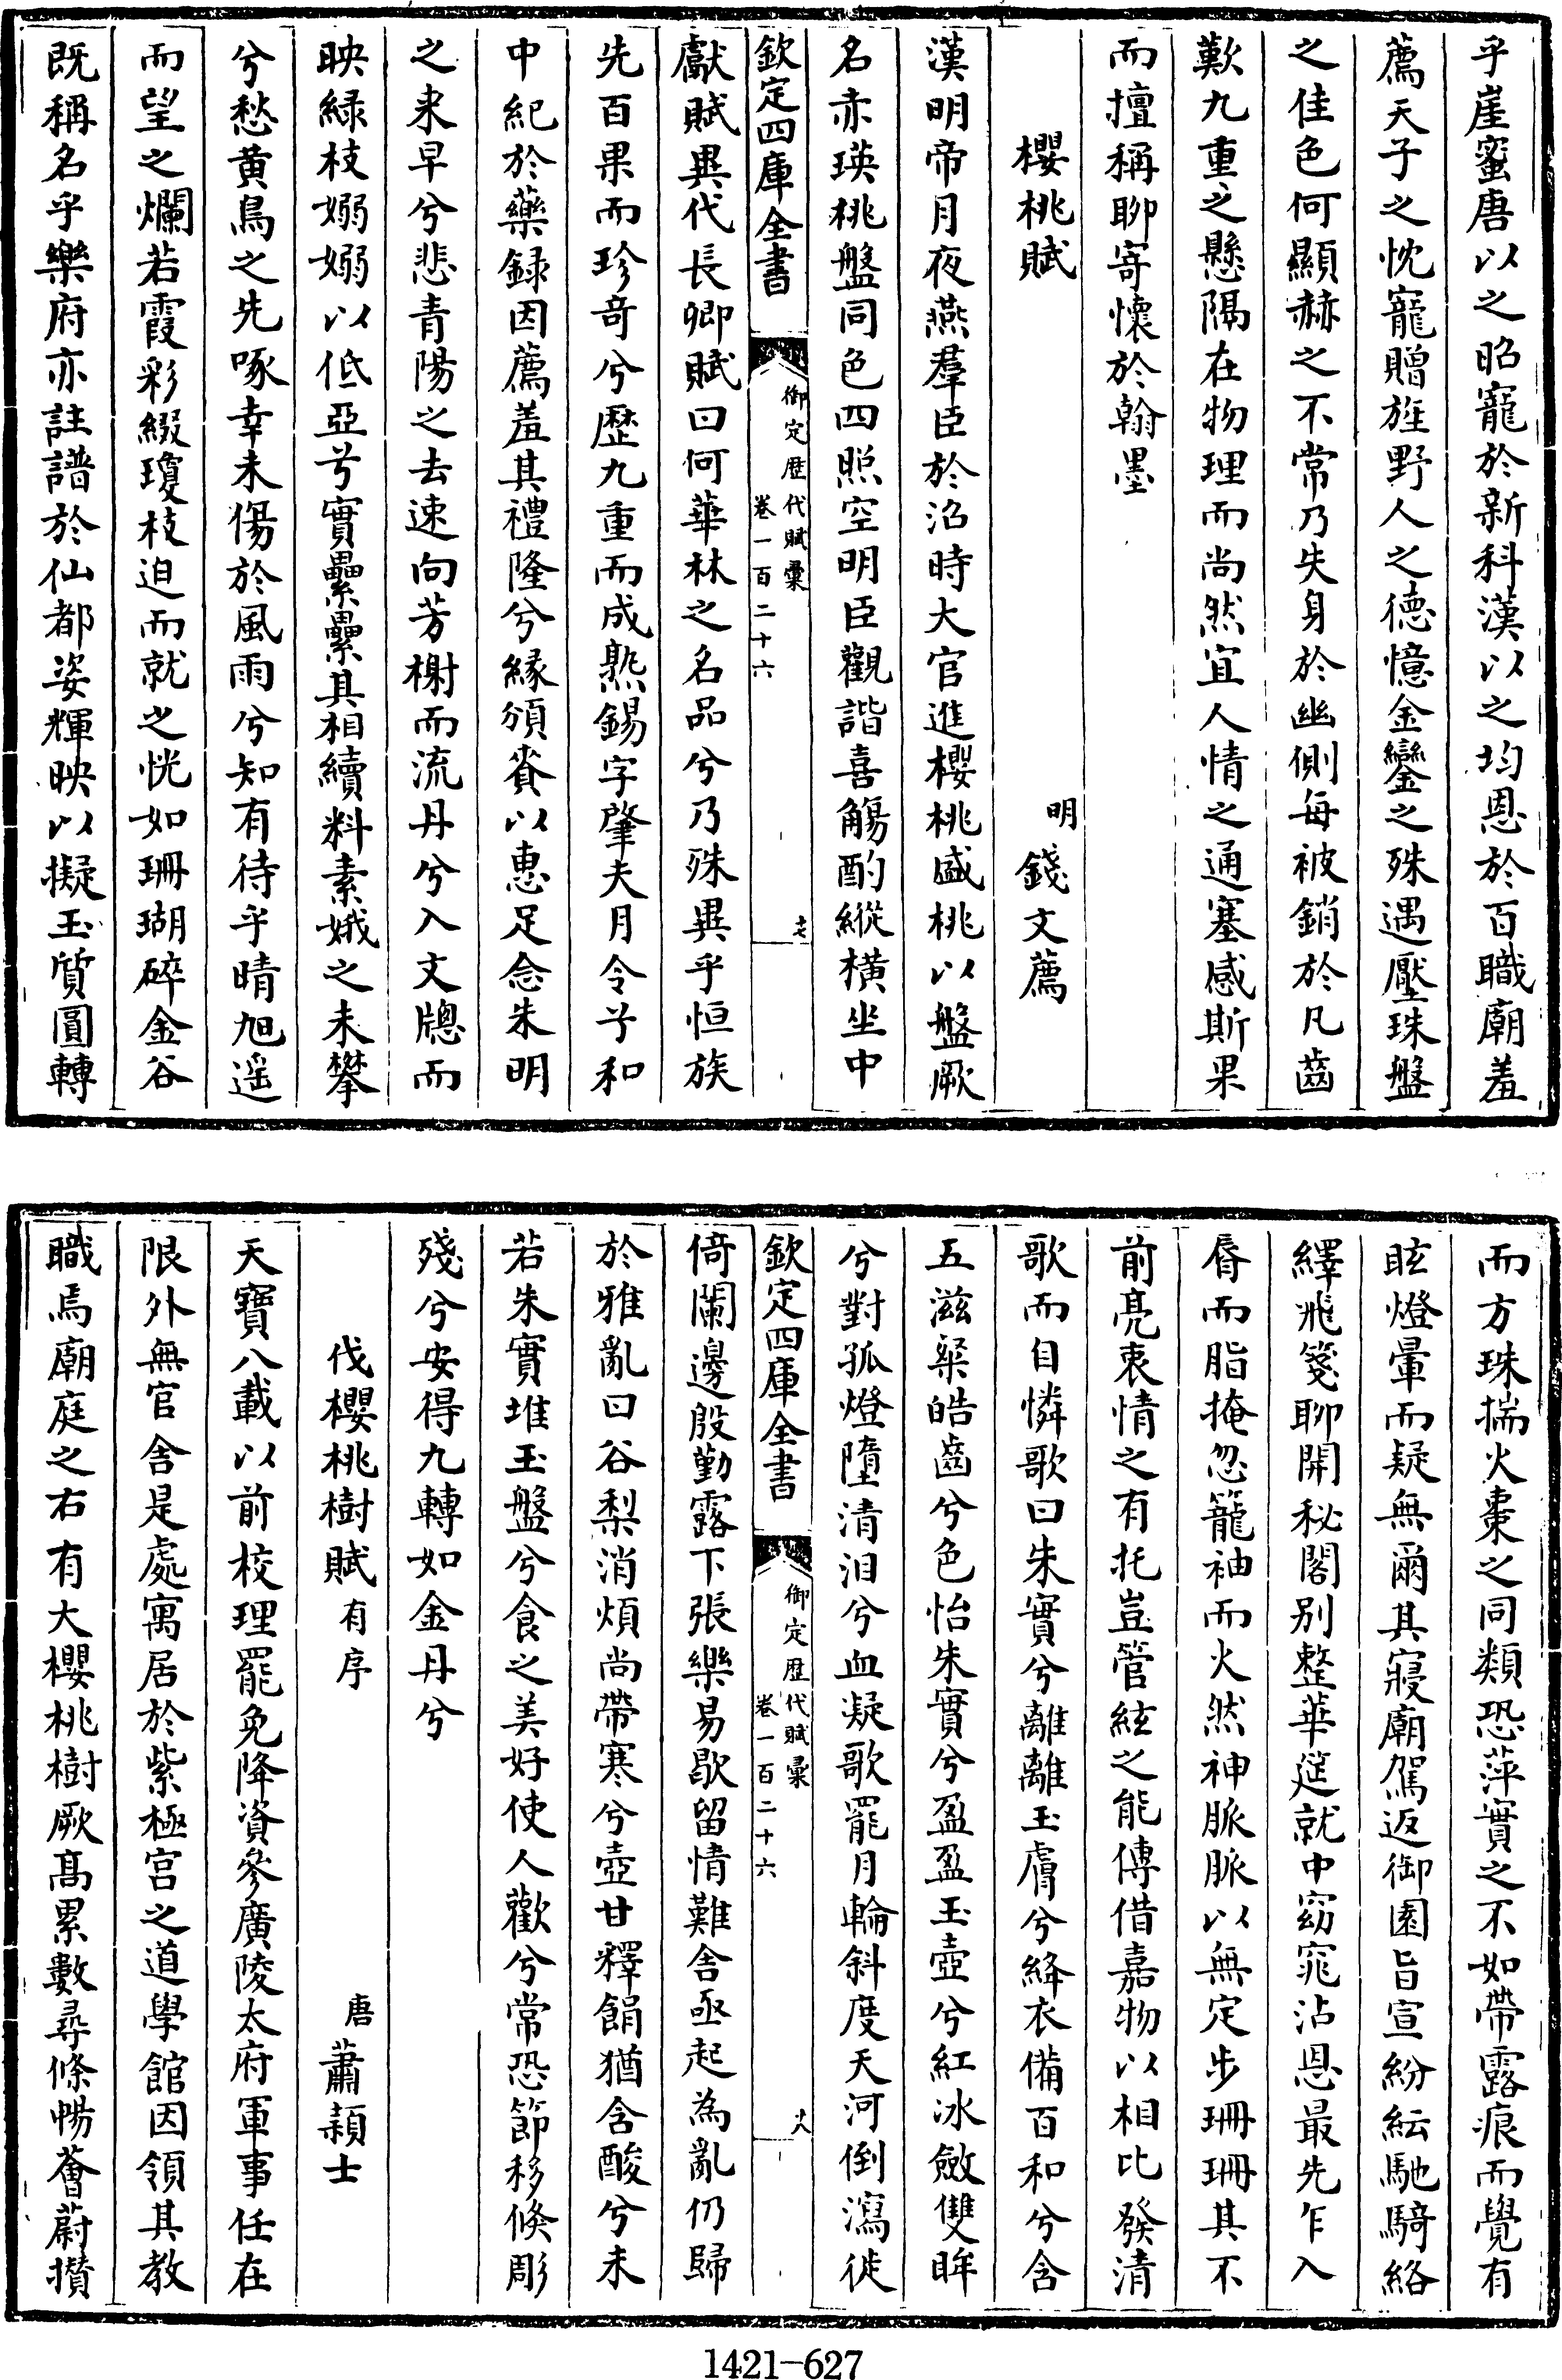 乎崖蜜唐以之昭寵於新科漢以之均恩於百職廟羞
薦天子之忱寵贈旌野人之德憶金鑾之殊遇壓珠盤
之佳色何顯赫之不常乃失身於幽側每被銷於凡齒
歎九重之懸隔在物理而尚然宜人情之通塞感斯果
而擅稱聊寄懷於翰墨
櫻桃賦 明 錢文薦
漢明帝月夜燕羣臣於沼時大官進櫻桃盛桃以盤厥
名赤瑛桃盤同色四照空明臣觀諧喜觴酌縱橫坐中
欽定四庫全書
御定歷代賦彙
卷一百二十六
十七
獻賦異代長卿賦曰何華林之名品兮乃殊異乎恒族
先百果而珍奇兮歷九重而成熟錫字肇夫月令兮和
中紀於藥録因薦羞其禮隆兮緣頒賚以惠足念朱明
之来早兮悲青陽之去速向芳榭而流丹兮入文牕而
映緑枝嫋嫋以低亞兮實纍纍其相續料素娥之未攀
兮愁黄鳥之先啄幸未傷於風雨兮知有待乎晴旭遥
而望之爛若霞彩綴瓊枝迫而就之恍如珊瑚碎金谷
既稱名乎樂府亦註譜於仙都姿輝映以擬玉質圓轉
而方珠揣火棗之同類恐萍實之不如帶露痕而覺有
眩燈暈而疑無爾其寢廟駕返御園旨宣紛紜馳騎絡
繹飛箋聊開秘閣别整華筵就中窈窕沾恩最先乍入
脣而脂掩忽籠袖而火然神脈脈以無定步珊珊其不
前亮衷情之有托豈管絃之能傳借嘉物以相比發清
歌而自憐歌曰朱實兮離離玉膚兮絳衣備百和兮含
五滋粲皓齒兮色怡朱實兮盈盈玉壺兮紅冰斂雙眸
兮對孤燈墮清泪兮血凝歌罷月輪斜度天河倒瀉徙
欽定四庫全書
御定歷代賦彙
卷一百二十六
十八
倚闌邊殷勤露下張樂易歇留情難舍亟起為亂仍歸
於雅亂曰谷梨消煩尚帶寒兮壺甘釋餶猶含酸兮未
若朱實堆玉盤兮食之美好使人歡兮常恐節移倏彫
殘兮安得九轉如金丹兮
伐櫻桃樹賦 有序 唐 蕭頴士
天寶八載以前校理罷免降資參廣陵太府軍事任在
限外無官舍是處寓居於紫極宫之道學館因領其教
職焉廟庭之右有大櫻桃樹厥髙累數尋條暢薈蔚攅
1421-627